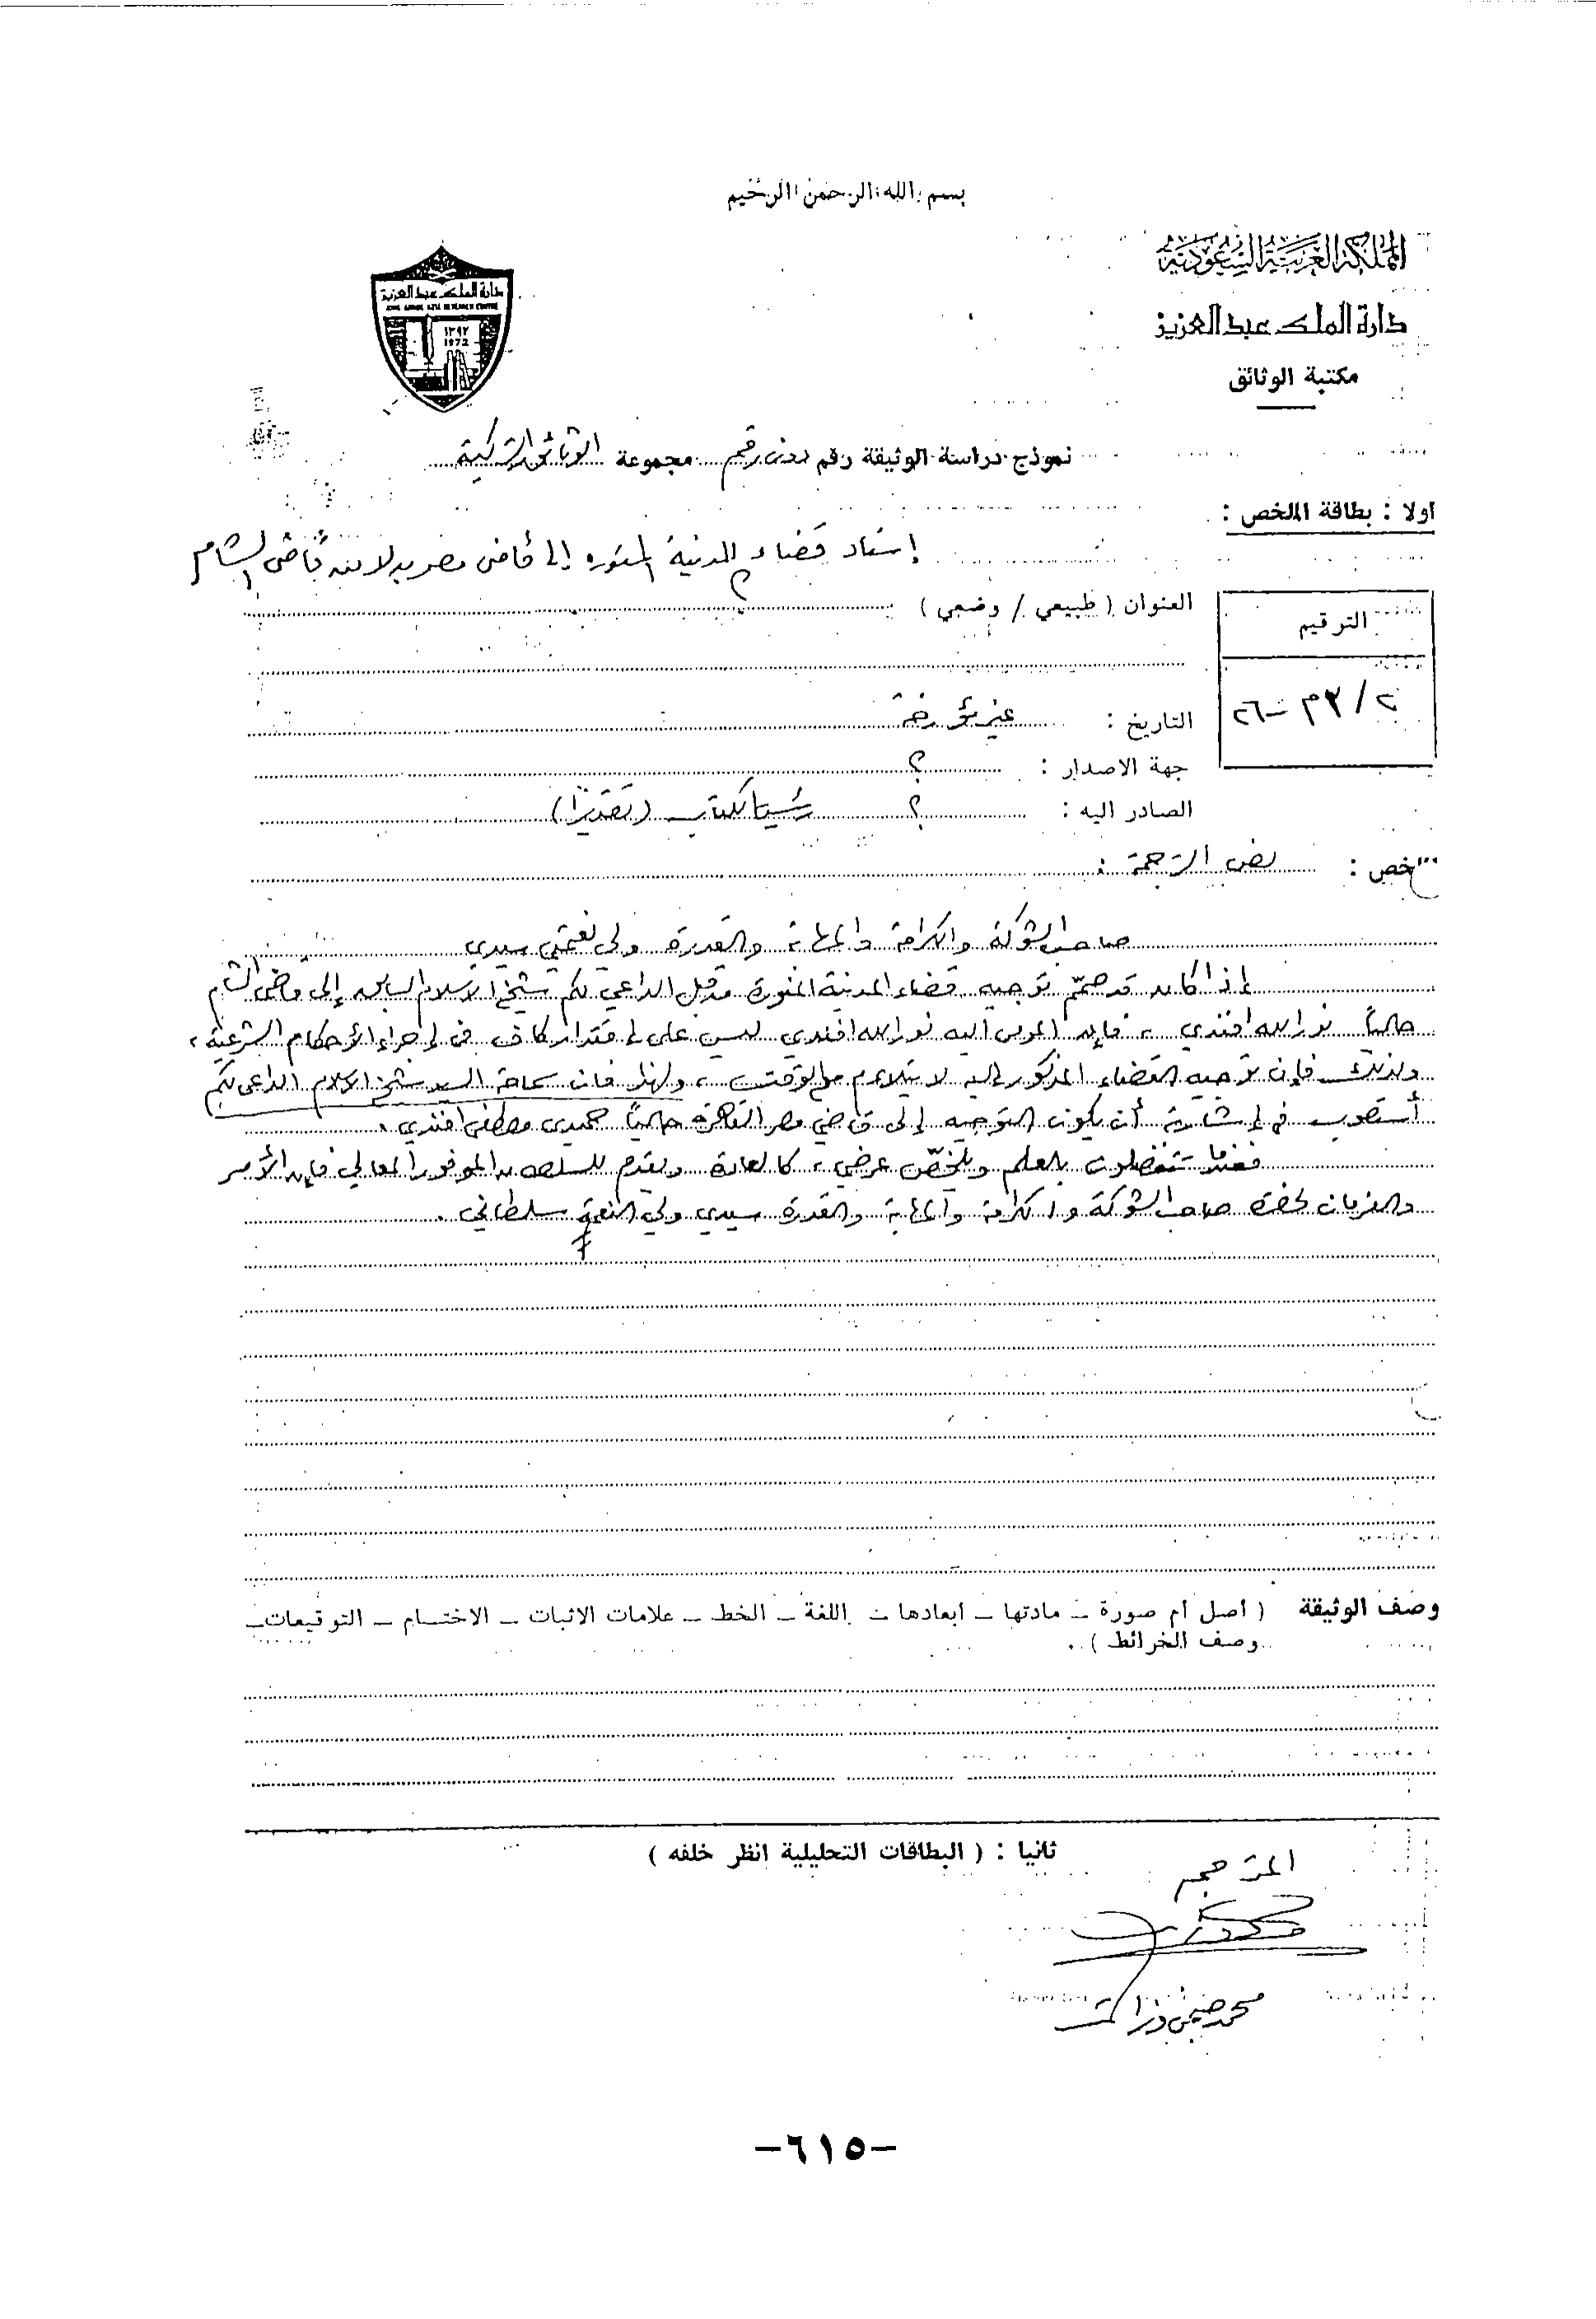 بسم الله الرحمن الرحيم
المملكة العربية السعودية
دارة الملك عبد العزيز
مكتبة الوثائق
دارة الملك عبد العزيز
KING ABDUL AZIZ RESEARCH CENTRE
١٣٩٢
1972
نموذج دراسة الوثيقة رقم بدون رقم مجموعة الوثائق التركية
اولا : بطاقة الملخص :
إسناد قضاء المدينة المنوره إلى قاضى مصر بدلا من قاضى الشام
العنوان ( طبيعي / وضعي )
الترقيم
٢/ ٣م - ٢٦
التاريخ : غير مؤرخة
جهة الاصدار : ؟
الصادر اليه : ؟ رئيس الكتاب (تقديرًا)
الملخص : نص الترجمة :
صاحب الشوكة والكرامة والمهابة والقدرة ولي نعمتي سيدي
إذا كان قد صمّم توجيه قضاء المدينة المنورة من قبل الداعي لكم شيخ الاسلام السابق إلى قاضى الشام
حالياً نور الله افندي ، فإن المومى اليه نور الله افندي ليس على اقتدار كاف فى إجراء الأحكام الشرعية ،
ولذلك فإن توجيه القضاء المذكور إليه لا يتلاءم مع الوقت ، ولهذا فان سماحة السيد شيخ الاسلام الداعى لكم
أستصوب في إشارته أن يكون التوجيه إلى قاضي مصر القاهرة حالياً حميدى مصطفى افندي .
فعندما تتفضلون بالعلم ويلخّص عرضي ، كالعادة ويقدم للسلطان الموفور المعالي فإن الأمر
والفرمان لحضرة صاحب الشوكة والكرامة والمهابة والقدرة سيدي ولي النعمة سلطاني .
وصف الوثيقة ( أصل أم صورة – مادتها – ابعادها – اللغة – الخط – علامات الاثبات – الاختام – التوقيعات –
وصف الخرائط ) .
ثانيا : ( البطاقات التحليلية انظر خلفه )
المترجم
محمد
–٦١٥–